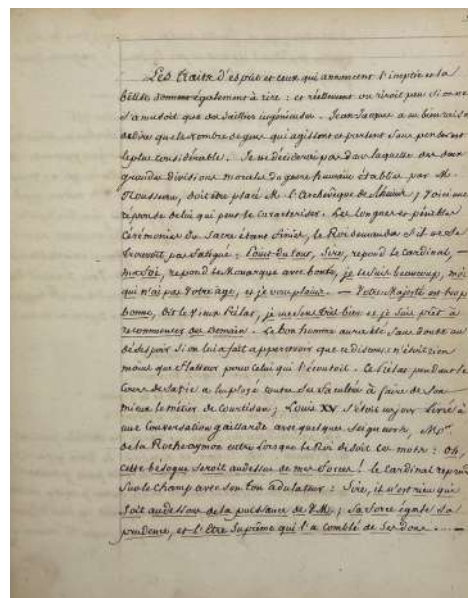 Les traits d'esprit et ceux qui annoncent l'ineptie et la
bêtise donnent également à rire : et réellement on riroit peu si on ne
s'amusoit que des saillies ingénieuses. Jean Jaques a eu bien raison
de dire que le nombre de gens qui agissent et parlent sans penser est
le plus considérable. Je ne déciderai pas dans laquelle des deux
grandes divisions morales du genre humain établies par M.
Rousseau, doit être placé M. l'Archevêque de Rheims ; voici une
réponse de lui qui peut le caractériser. Les longues et pénibles
Cérémonies du Sacre étant finies, le Roi demanda s'il ne se
trouvoit pas fatigué : Point du tout, Sire, repond le cardinal, —
ma foi, repond le Monarque avec bonté, je le suis beaucoup, moi
qui n'ai pas votre age, et je vous plains. — Votre Majesté est trop
bonne, dit le vieux Prélat, je me sens très bien et je suis prêt à
recommencer dès demain. Le bon homme auroit été sans doute au
désespoir si on lui a fait appercevoir que ce discours n'étoit rien
moins que flatteur pour celui qui l'écoutoit. Ce Prélat pendant le
cours de sa vie a employé toutes ses facultés à faire de son
mieux le métier de courtisan ; Louis XV s'étoit un jour livré à
une conversation gaillarde avec quelques seigneurs, Mgr.
de la Rocheaymon entre lorsque le Roi disoit ces mots : Oh,
cette besogne seroit audessus de mes forces ! le cardinal reprend
sur le champ avec son ton adulateur : Sire, il n'est rien qui
soit audessus de la puissance de V.M ; sa force égale sa
prudence, et l'Etre Suprême qui l'a comblé de ses dons .... —